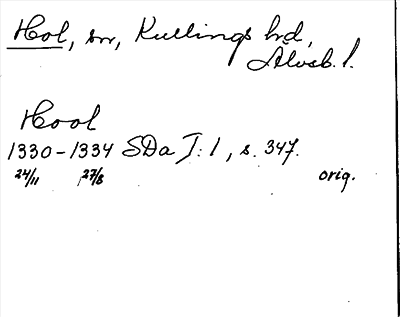 Hol, sn, Kullings hd,
Älvsb. l.
Hool
1330-1334 SDa I: 1, s. 347.
24/11 27/8 orig.